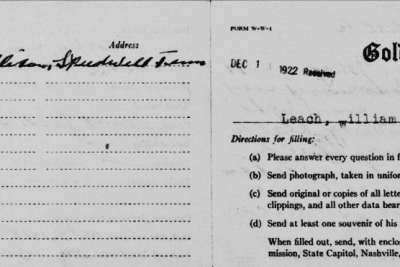 Address
Speedwell Tenn
FORM W-W-1
Gol
DEC 1 1922 Received
Leach, william
Directions for filling:
(a) Please answer every question in f
(b) Send photograph, taken in unifor
(c) Send original or copies of all lette
clippings, and all other data bear
(d) Send at least one souvenir of his
When filled out, send, with enclo
mission, State Capitol, Nashville,